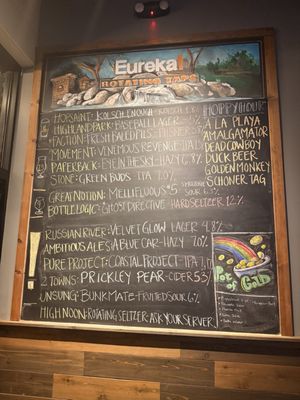 Eureka!
ROTATING TAPS
HORSAINT: KOLSCH ENOUGH
HIGHLAND PARK: BASEBALL LAGER - 5%
FACTION: FRESH PALE PILS - PILSNER
MOVEMENT: VENOMOUS REVENGE
PAPERBACK: EYE IN THE SKY - HAZY C, 8%
STONE: GREEN BUDS IPA 7.0%
GREAT NOTION: MELLIFLUOUS #5 SOUR 6.3%
BOTTLE LOGIC: GHOST DIRECTIVE - HARD SELTZER 12%
RUSSIAN RIVER: VELVET GLOW LAGER 4.8%
AMBITIOUS ALES: A BLUE CAR - HAZY 7.0%
PURE PROJECT: COASTAL PROJECT IPA
2 TOWNS: PRICKLEY PEAR - CIDER 5.3%
UNSUNG: BUNKMATE - FRUITED SOUR 6%
HIGH NOON: ROTATING SELTZER: ASK YOUR SERVER!
HOPPY HOUR
A LA PLAYA
AMALGAMATOR
DEAD COWBOY
DUCK BEER
GOLDEN MONKEY
SCHONER TAG
Pot of Gold